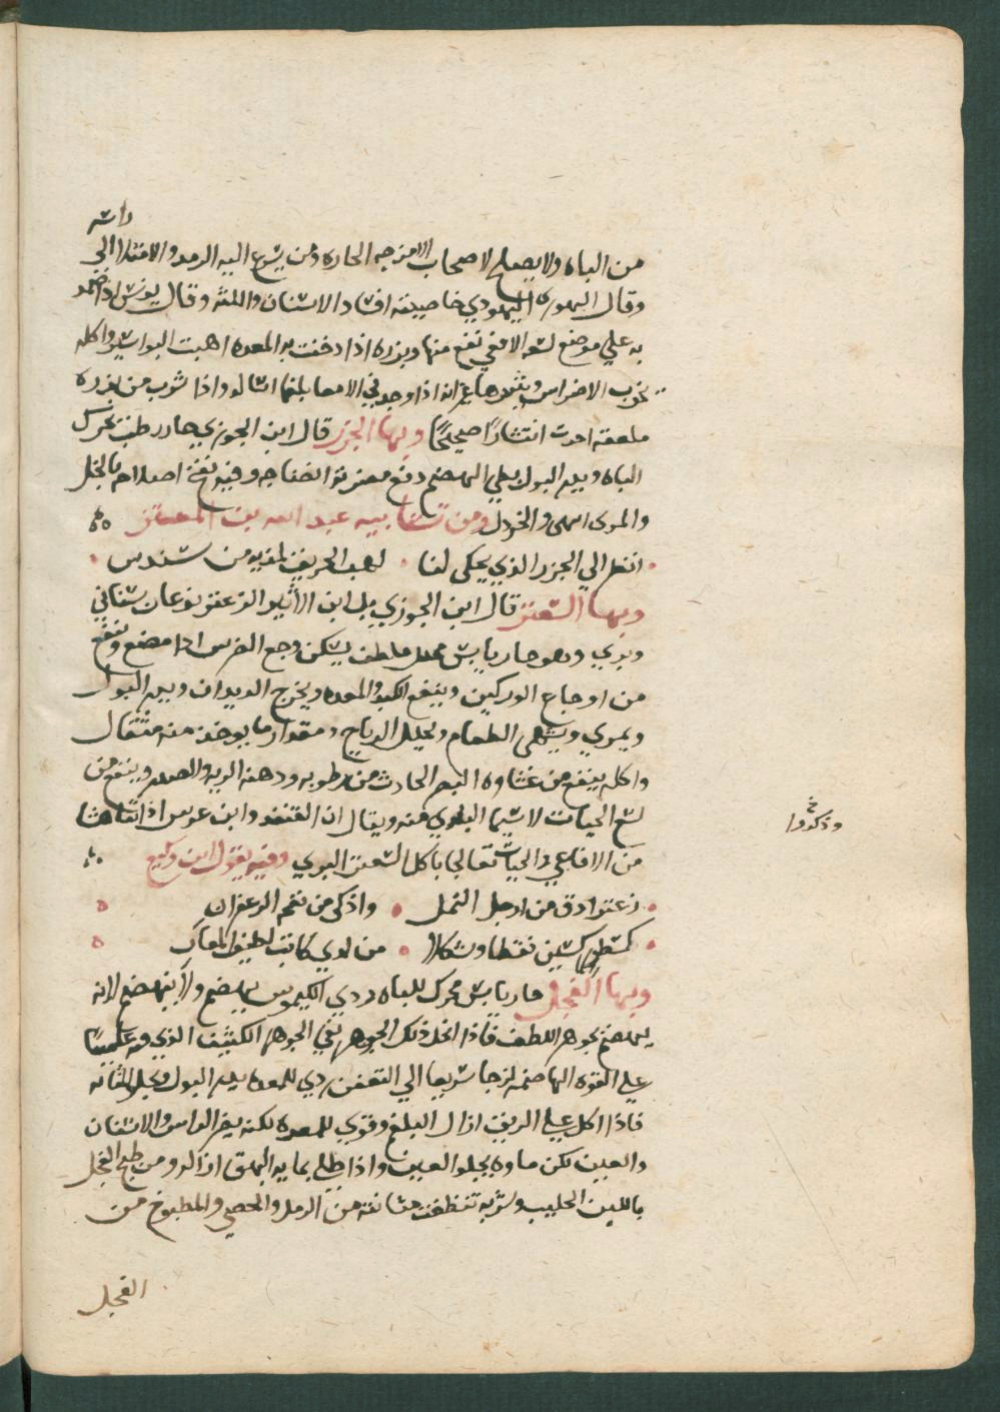 راسه
من الباه ولا يصلح لاصحاب الامزجه الحاره ومن يسرع اليه الرمد والامتلا الي
وقال اليهودي خاصيته افساد الاسنان واللثه وقال يونس اذا ضمد
به علي موضع لسع الافعي نفع منها وبزره اذا دخنت به المعده اهبت البواسير واكله
يخرب الاضراس انه اذا وجد في الامعا بلغما اساله واذا شرب من بزره
ملعقه احدث انتشارا صحيحا ومنها الجزر قال ابن الجوزي حار رطب يحرك
الباه ويدر البول بطي الهضم دفع مضرته انضاجه وفيه نفخ اصلاحه بالخل
والمري والخردل ومن تشابيه عبد الله بن المعتز
انظر الي الجزر الذي يحكي لنا لهب الحريق من سندس
ومنها السعتر قال ابن الجوزي الزعتر نوعان بستاني
وبري وهو حار يابس محلل ملطف يسكن وجع الضرس اذا مضغ وينفع
من اوجاع الوركين وينفع الكبد والمعده ويخرج الديدان ويدر البول
ويمري ويشهي الطعام ويحلل الرياح ومقدار ما يوخذ منه مثقال
واكله ينفع من غشاوه البصر الحادث من رطوبه ودهنه الريه والصدر وينفع من
لسع الحيات لاسيما البري منه ويقال ان القنفد وابن عرس اذا تناهشا
من الافاعي والحيات تعالجا باكل السعتر البري وفيه يقول ابن وكيع
وذكروا
زعتر ادق من ارجل النمل واذكي من نفحه الزعفران
كسطور كسين نقطا وشكلا من يدي كاتب لطيف المعاني
ومنها الفجل حار يابس محرك للباه ردي الكيموس يهضم ولا ينهضم لانه
يهضم بجوهر اللطف فاذا انحل ذلك الجوهر بقي الجوهر الكثيف الذي فيه
علي القوه الهاضمه لزجا سريعا الي التعفن ردي للمعده يدر البول ويجلو المثانه
فاذا اكل علي الريق ازال البلغم وقوي المعده لكنه يضر الراس والاسنان
والعين لكن ماوه يجلو العين واذا طلي بمايه البهق ازاله ومن طبخ الفجل
باللبن الحليب وشربه تنظفت مثانته من الرمل والحصي والمطبوخ من
الفجل